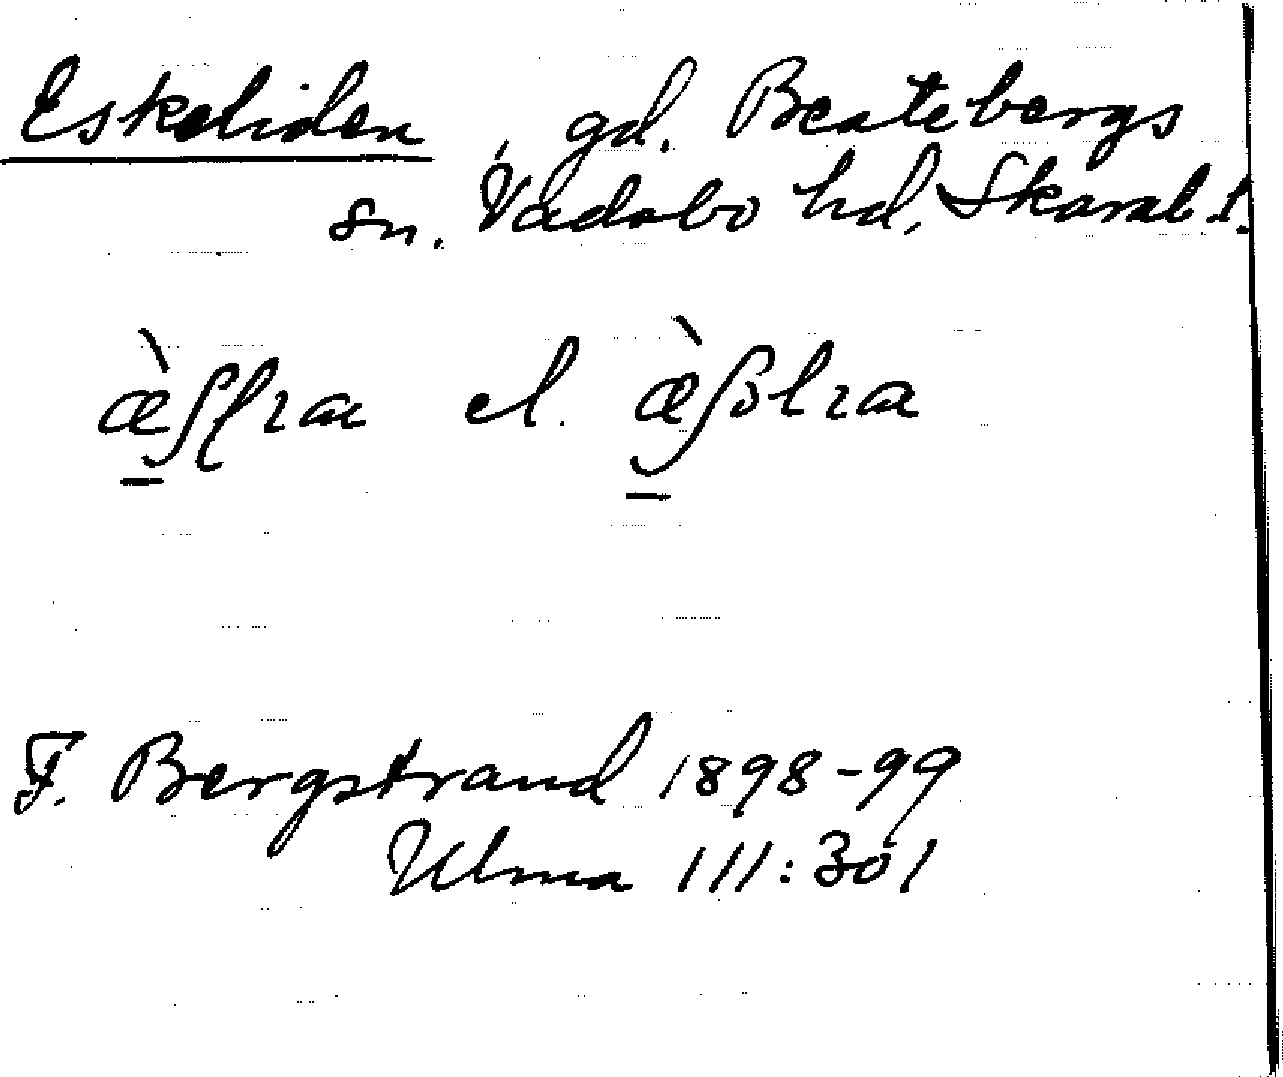 Eskeliden, gd. Beatebergs
sn. Vadsbo hd, Skarab.l.
el.
F. Bergstrand 1898-99
Ulma 111:301